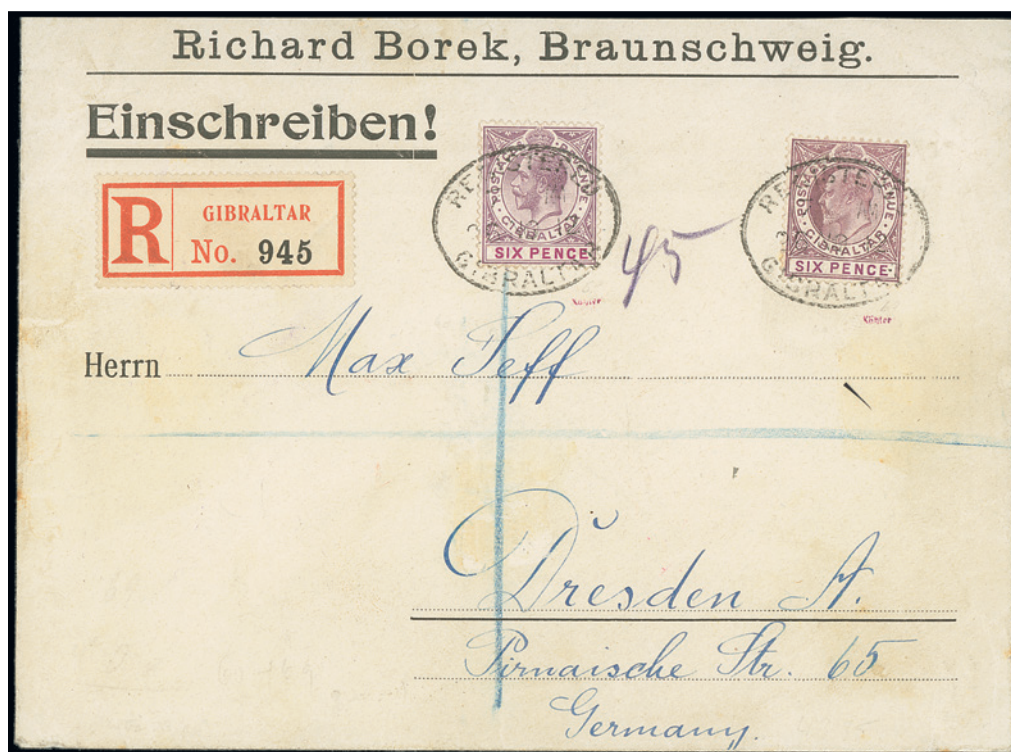 Richard Borek, Braunschweig.
Einschreiben!
R
GIBRALTAR
No. 945
POSTAGE & REVENUE
GIBRALTAR
SIX PENCE
REGISTERED
GIBRALTAR
Köhler
45
POSTAGE & REVENUE
GIBRALTAR
SIX PENCE
REGISTERED
GIBRALTAR
Köhler
Herrn Max Jeff
Dresden A.
Pirnaische Str. 65
Germany.